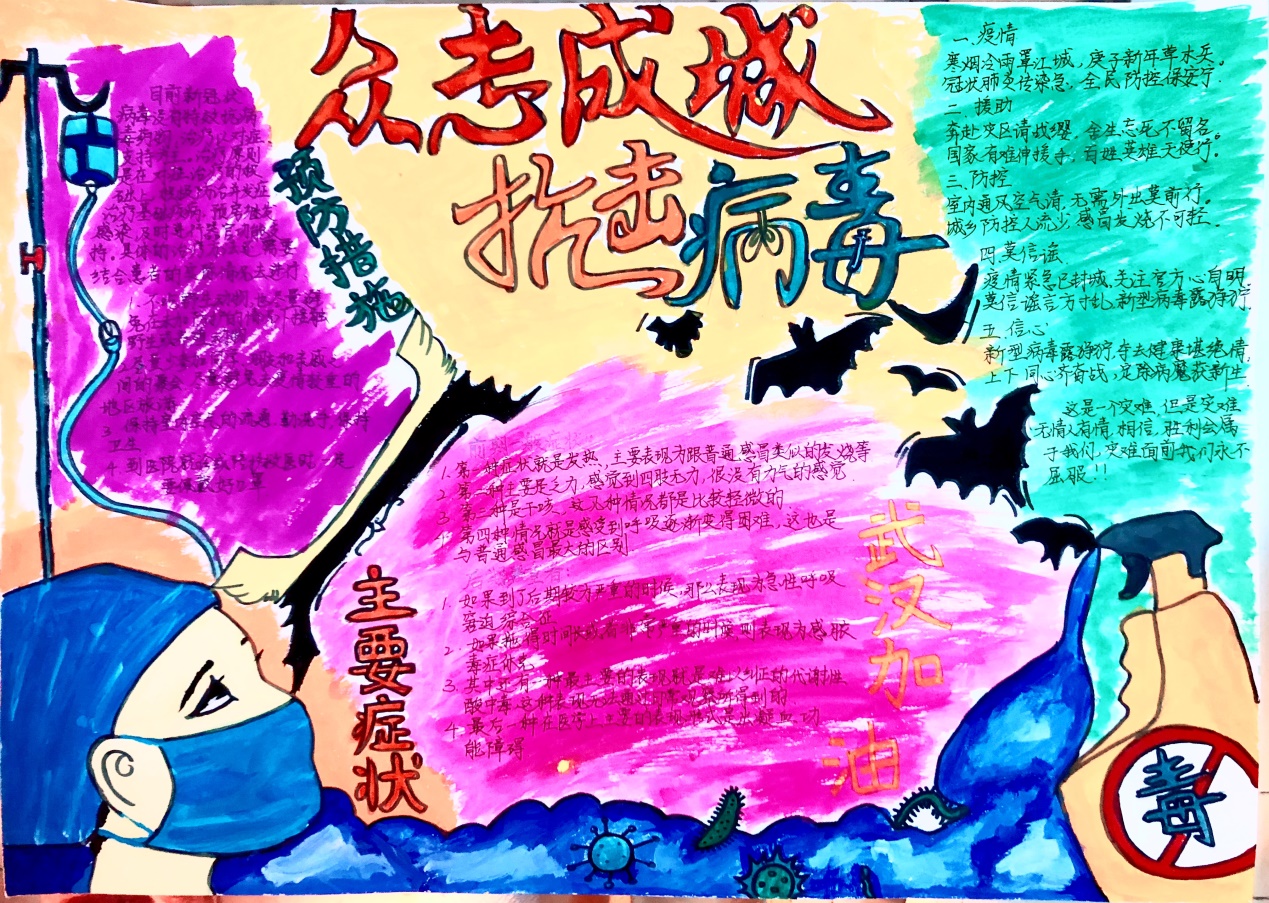 众志成城
抗击病毒
预防措施
目前新冠状
病毒没有特效抗病
毒药物,治疗以对症、
支持为主。治疗原则
是在对症治疗的
础上,积极防治并发症
治疗基础疾病,预防继发
感染,及时进行器官功能支
持。具体的治疗方法还需要
结合患者的实际情况去进行
1. 不
免在未
野生
2. 尽量
间的聚会
地区旅游
3. 保持室内空气的流通,勤洗手,保持
卫生
4. 到医院就诊或陪护就医时,一定
要佩戴好口罩
主要症状
1. 第一种症状就是发热,主要表现为跟普通感冒类似的发烧等
2. 第二种主要是乏力,感觉到四肢无力,很没有力气的感觉.
3. 第三种是干咳,这几种情况都是比较轻微的.
4. 第四种情况就是感受到呼吸逐渐变得困难,这也是
与普通感冒最大的区别.
1. 如果到了后期较为严重的时候,那么表现为急性呼吸
窘迫综合征
2. 如果拖得时间长或者非常严重的时候则表现为感脓
毒症休克
3. 其中还有一种最主要的表现则是难以纠正的代谢性
酸中毒,这种表现无法通过日常观察所得到的
4. 最后一种在医学上主要的表现形式是出凝血功
能障碍
武汉加油
一、疫情
寒烟冷雨罩江城,庚子新年草木兵。
冠状肺炎传染急,全民防控保安宁.
二、援助
奔赴灾区请战缨,舍生忘死不留名。
国家有难伸援手,百姓英雄天使行。
三、防控
室内通风空气清,无需外出莫前行。
城乡防控人流少,感冒发烧不可轻.
四、莫信谣
疫情紧急已封城,关注官方心自明.
莫信谣言方寸乱,新型病毒露狰狞.
五、信心
新型病毒露狰狞,夺去健康堪绝情,
上下同心齐奋战,定除病魔获新生.
这是一个灾难,但是灾难
无情人有情,相信,胜利会属
于我们,灾难面前我们永不
屈服!!
毒